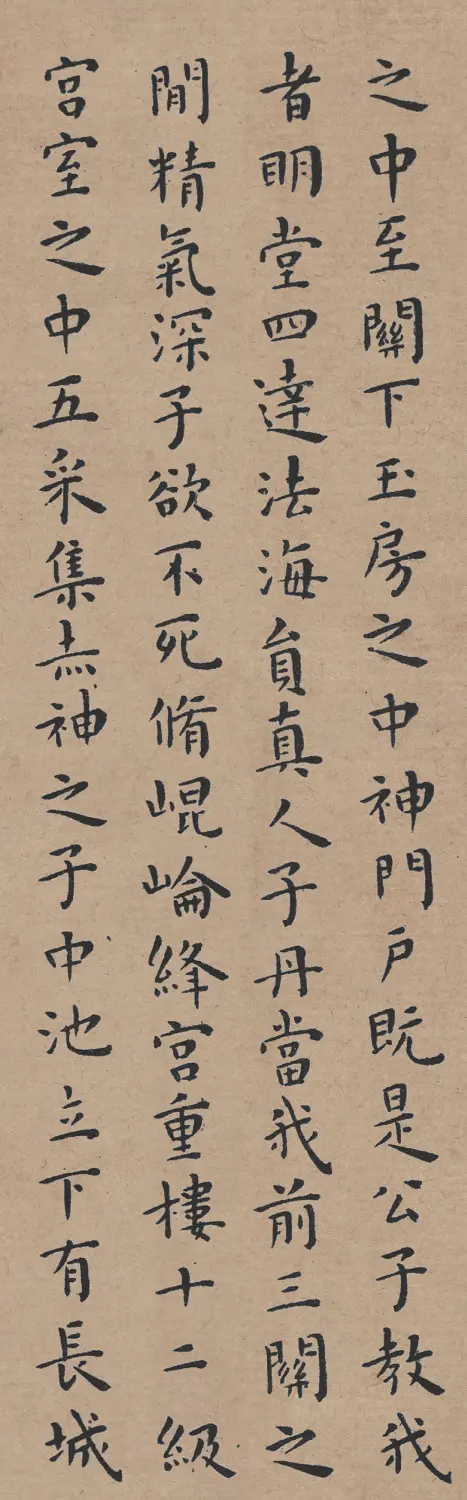 之中至關下玉房之中神門戶既是公子教我
者明堂四達法海員真人子丹當我前三關之
間精氣深子欲不死脩崐崘絳宮重樓十二級
宮室之中五采集赤神之子中池立下有長城